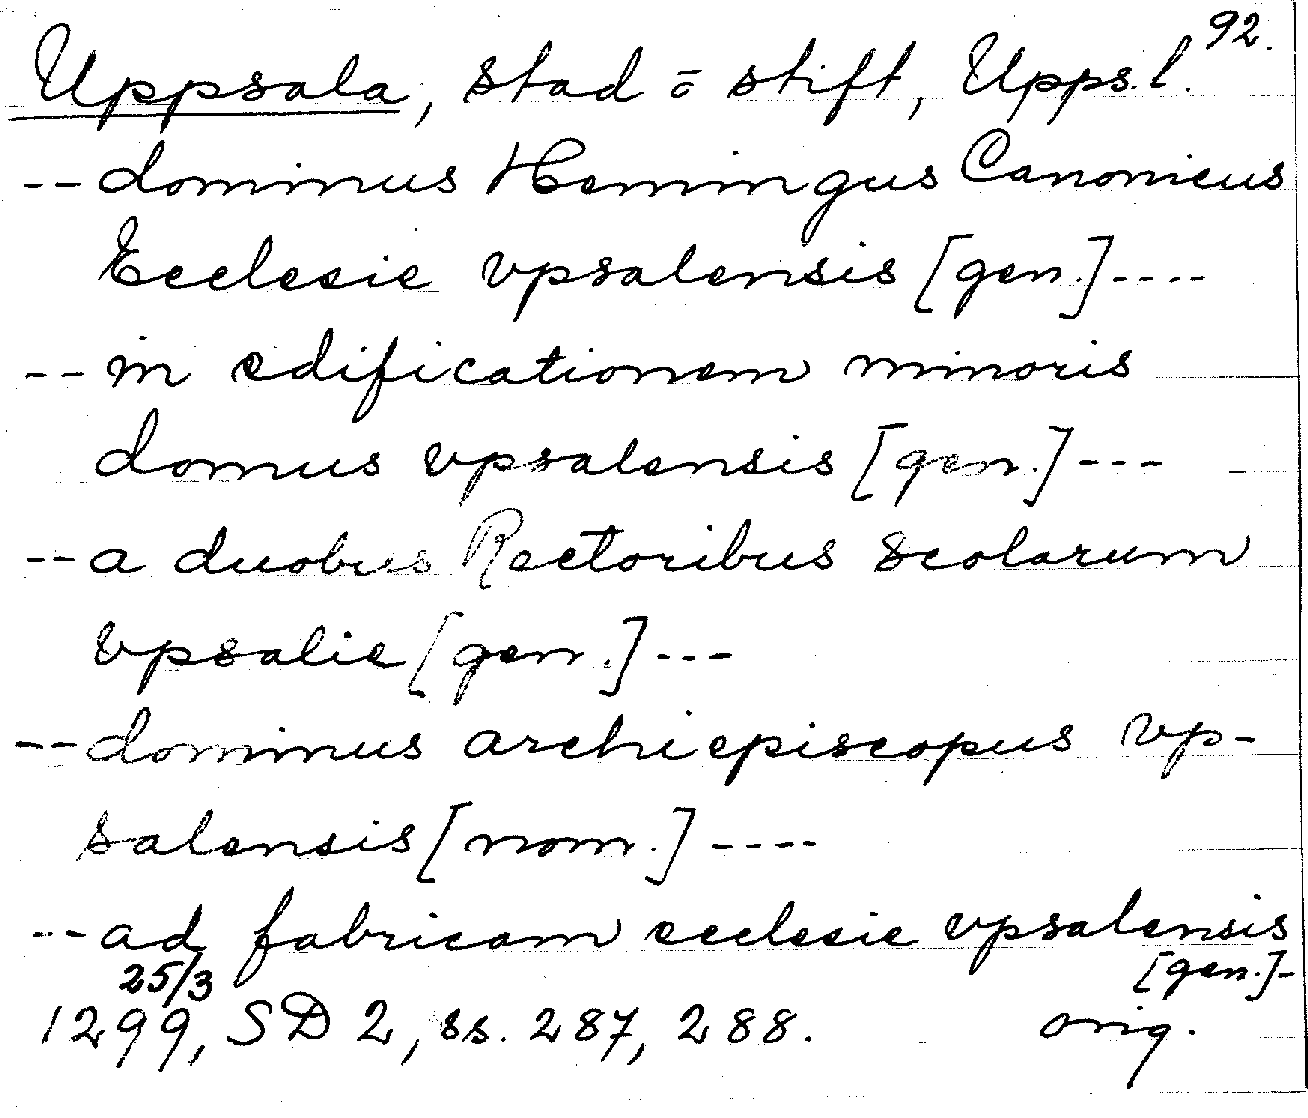 92.
Uppsala, stad o̅ stift, Upps.l.
-- dominus Hemingus Canonicus
Ecclesie vpsalensis [gen.] ----
-- in edificationem minoris
domus vpsalensis [gen.] ---
-- a duobus Rectoribus scolarum
vpsalie [gen.] ---
-- dominus archiepiscopus vp-
salensis [nom.] ----
-- ad fabricam ecclesie vpsalensis
[gen.]-
25/3
1299, SD 2, ss. 287, 288. orig.